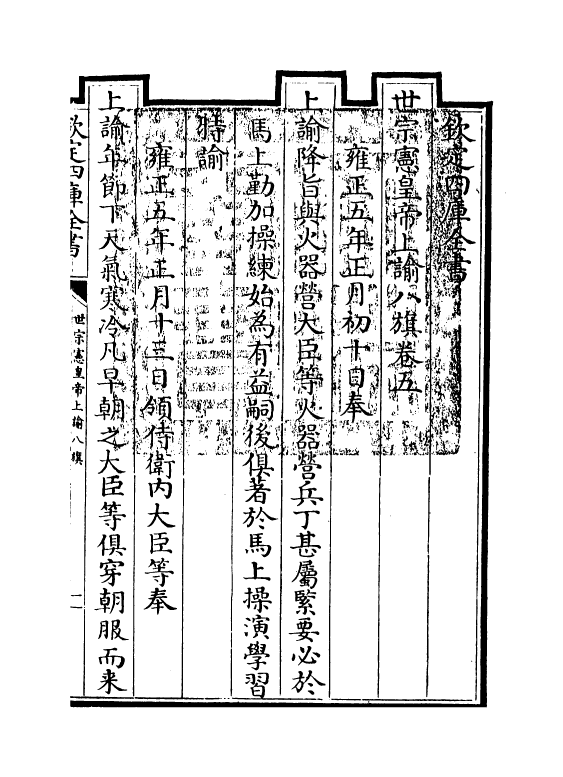 欽定四庫全書
世宗憲皇帝上諭八旗卷五
雍正五年正月初十日奉
上諭降旨與火器營大臣等火器營兵丁甚屬緊要必於
馬上勤加操練始為有益嗣後俱著於馬上操演學習
特諭
雍正五年正月十三日領侍衛內大臣等奉
上諭年節下天氣寒冷凡早朝之大臣等俱穿朝服而来
欽定四庫全書
世宗憲皇帝上諭八旗